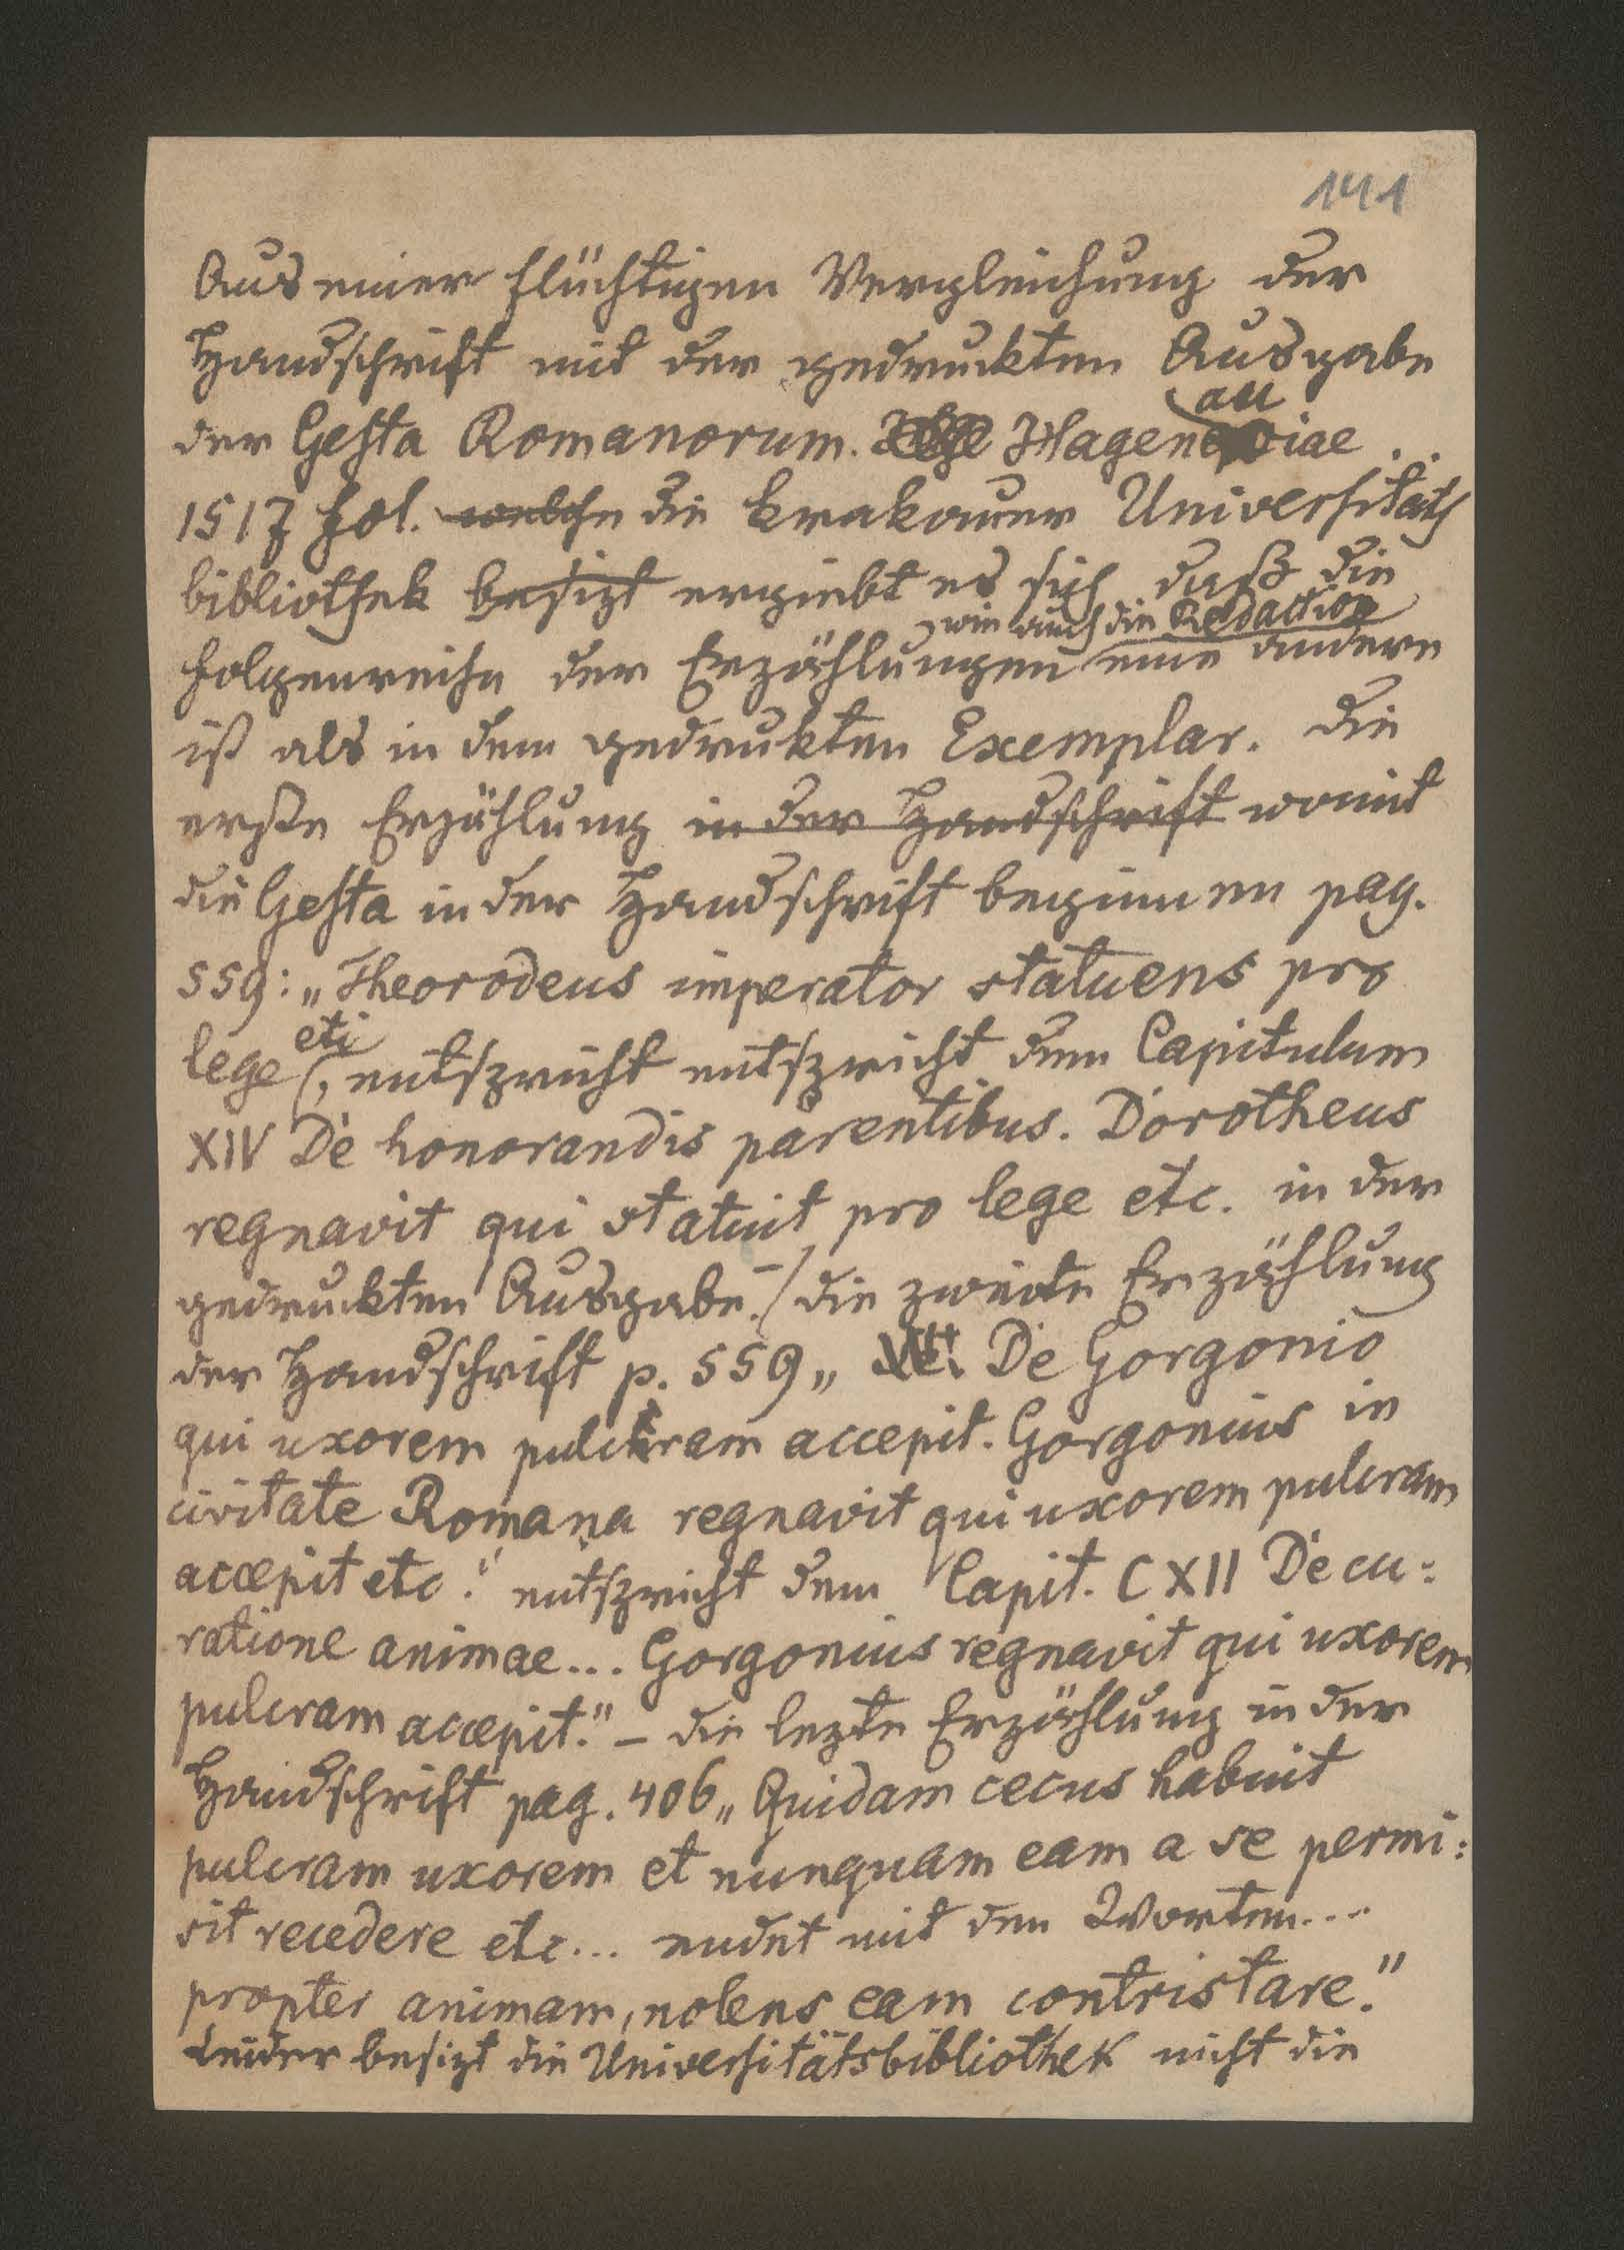 141
Aus einer flüchtigen Vergleichung der
Handschrift mit der gedruckten Ausgabe
der Gesta Romanorum. Hagenauiae ..
1517 fol. welche die krakauer Universitäts
bibliothek besizt ergiebt es sich daß die
wie auch die Redaction
Folgenreihe der Erzählungen eine andere
ist als in dem gedrukten Exemplar. Die
erste Erzählung in der Handschrift womit
die Gesta in der Handschrift beginnen pag.
559: „Theorodeus imperator statuens pro
lege etc, entspricht entspricht dem Capitulum
XIV De honorandis parentibus. Dorotheus
regnavit qui statuit pro lege etc. in der
gedruckten Ausgabe.- / die zweite Erzählung
der Handschrift p. 559 „ De Gorgonio
qui uxorem pulchram accepit. Gorgonius in
civitate Romana regnavit qui uxorem pulcram
accepit etc." entspricht dem Capit. CXII De cu:
ratione animae... Gorgonius regnavit qui uxorem
pulcram accepit." – die lezte Erzählung in der
Handschrift pag. 406 „Quidam cecus habuit
pulcram uxorem et nunquam eam a se permi:
sit recedere etc... endet mit den Worten...
propter animam, nolens eam contristare."
Leider besizt die Universitätsbibliothek nicht die